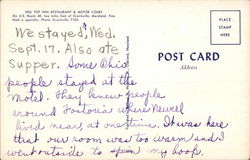 HILL TOP INN RESTAURANT & MOTOR COURT
On U.S. Route 40, two miles East of Grantsville, Maryland. Fine
Food a specialty. Phone: Grantsville
We stayed Wed.
Sept. 17. Also ate
Supper. Some Ohio
people stayed at the
Motel. They knew people
around Fostoria where Newell
lived near at one time. It was here
that our room was too warm and I
went outside to my hoop.
POST CARD
Address